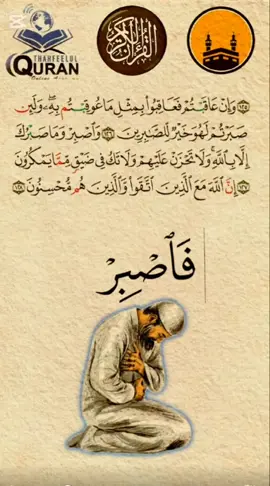 THAHFEELUL
QURAN
القرآن الكريم
وَإِنْ عَاقَبْتُمْ فَعَاقِبُوا۟ بِمِثْلِ مَا عُوقِبْتُم بِهِۦ ۖ وَلَئِن
صَبَرْتُمْ لَهُوَ خَيْرٌ لِّلصَّـٰبِرِينَ ١٢٦ وَٱصْبِرْ وَمَا صَبْرُكَ
إِلَّا بِٱللَّهِ ۚ وَلَا تَحْزَنْ عَلَيْهِمْ وَلَا تَكُ فِى ضَيْقٍ مِّمَّا يَمْكُرُونَ
١٢٧ إِنَّ ٱللَّهَ مَعَ ٱلَّذِينَ ٱتَّقَوا۟ وَّٱلَّذِينَ هُم مُّحْسِنُونَ ١٢٨
فَٱصْبِرْ